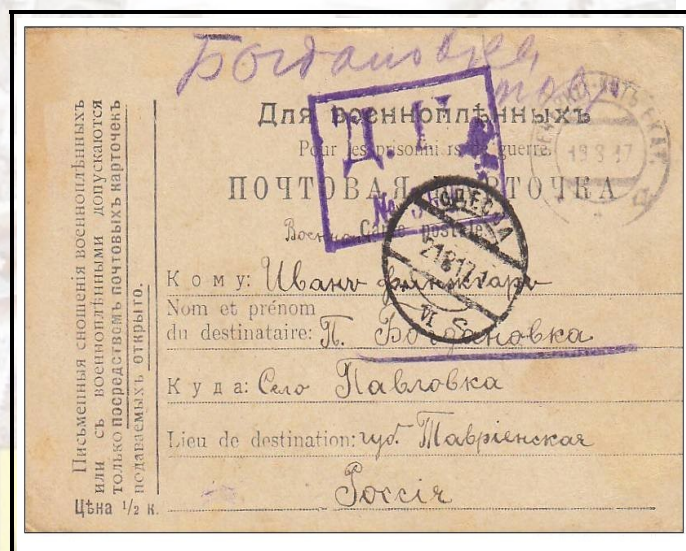 Богдановка
Для военноплѣнныхъ
Pour les prisonniers de guerre
ПОЧТОВАЯ КАРТОЧКА
Carte postale
Кому: Иванъ
Nom et prénom
du destinataire: П. Богдановка
Куда: Село Павловка
Lieu de destination: губ. Тавріенская
Россія
Письменныя сношенія военноплѣнныхъ
или съ военноплѣнными допускаются
только посредствомъ почтовыхъ карточекъ
подаваемыхъ открыто.
Цѣна ½ к.
Д.
№
ОДЕССА
21 8 17
19 8 17